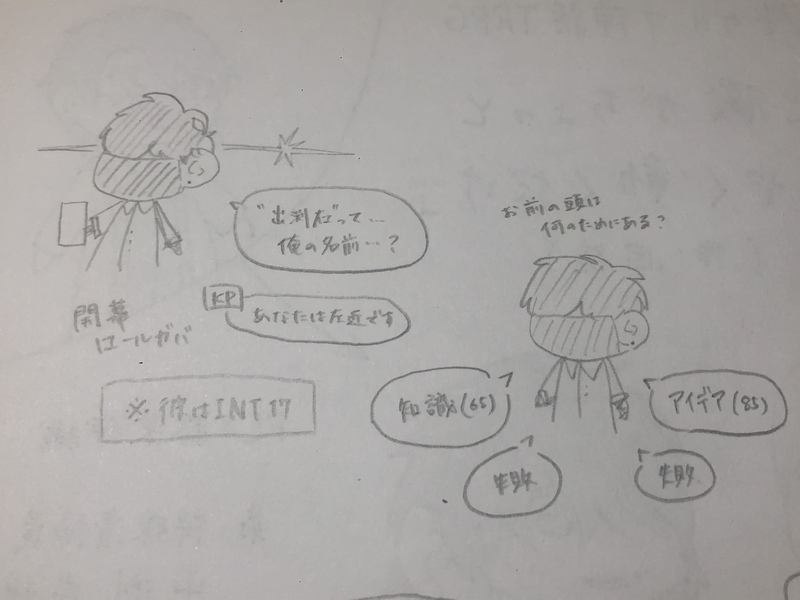 "出渕在"って…
俺の名前…?
KP
あなたは左近です
開幕
ロールガバ
※彼はINT17
お前の頭は
何のためにある?
知識(65)
アイデア(85)
失敗
失敗